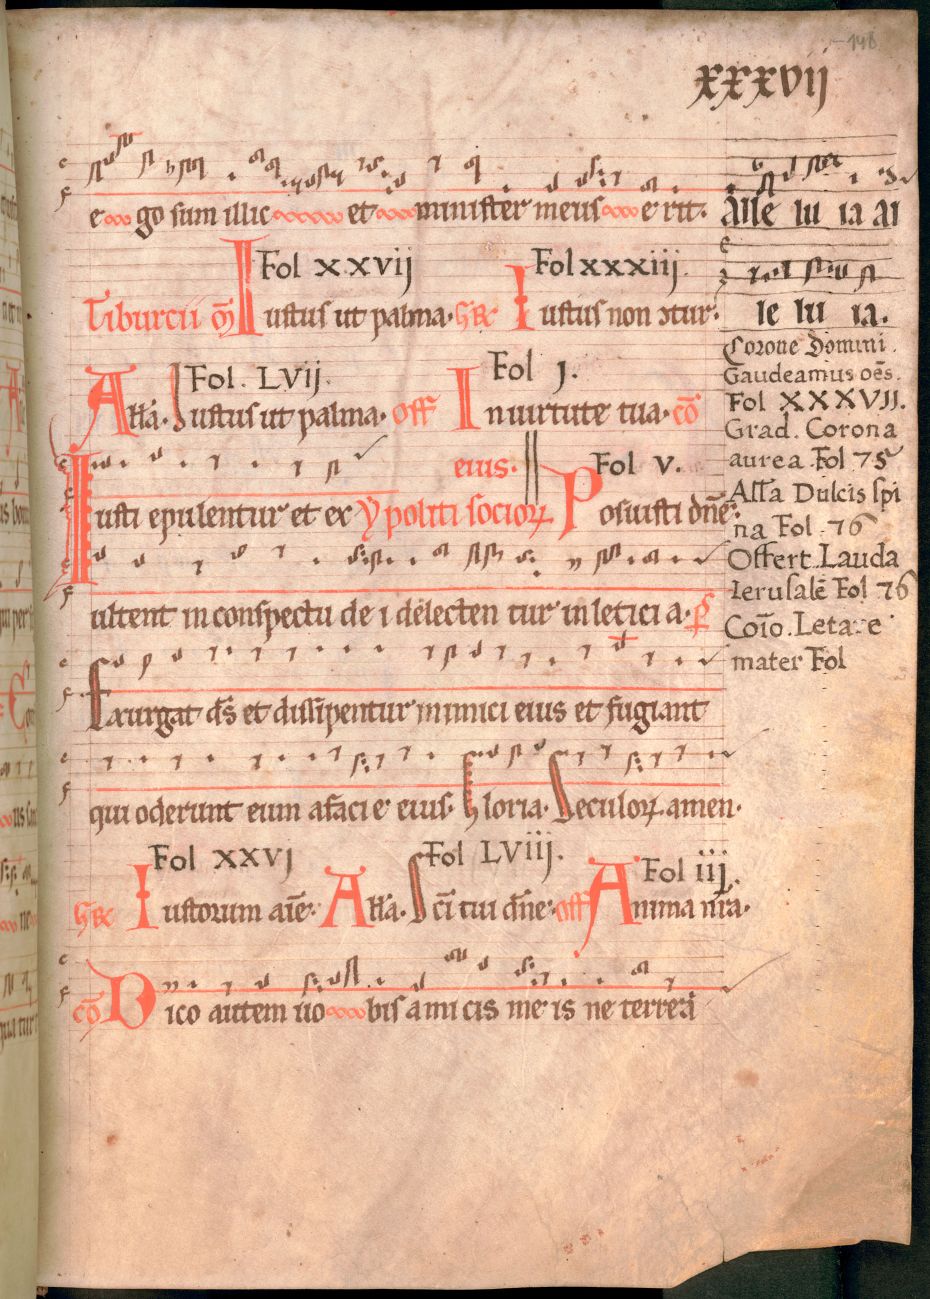 148
xxxvij
e go sum illic et minister meus e rit.
Fol xxvij Fol xxxiij
Tiburcii Iustus ut palma. Iustus non
Fol. Lvij. Fol j.
All'a. Iustus ut palma. off In uirtute tua. cō
eius. Fol v.
Iusti epulentur et ex ypoliti socioꝝ Posuisti dn̄e.
ultent in conspectu de i delecten tur in letici a. ps
Exurgat ds̄ et dissipentur inimici eius et fugiant
qui oderunt eum afaci e eius. Gloria. Seculoꝝ. amen.
Fol xxvj Fol Lviij. Fol iij.
Iustorum aīe. All'a. Sc̄i tui dn̄e. off Anima nr̄a.
cō Dico autem uo bis a mi cis me is ne terreā
Alle lu ia Al
le lu ia.
Corone Domini.
Gaudeamus oēs.
Fol XXXVII.
Grad. Corona
aurea Fol 75
All'a Dulcis spi
na Fol 76
Offert. Lauda
Ierusalē Fol 76
Coīo. Letare
mater Fol